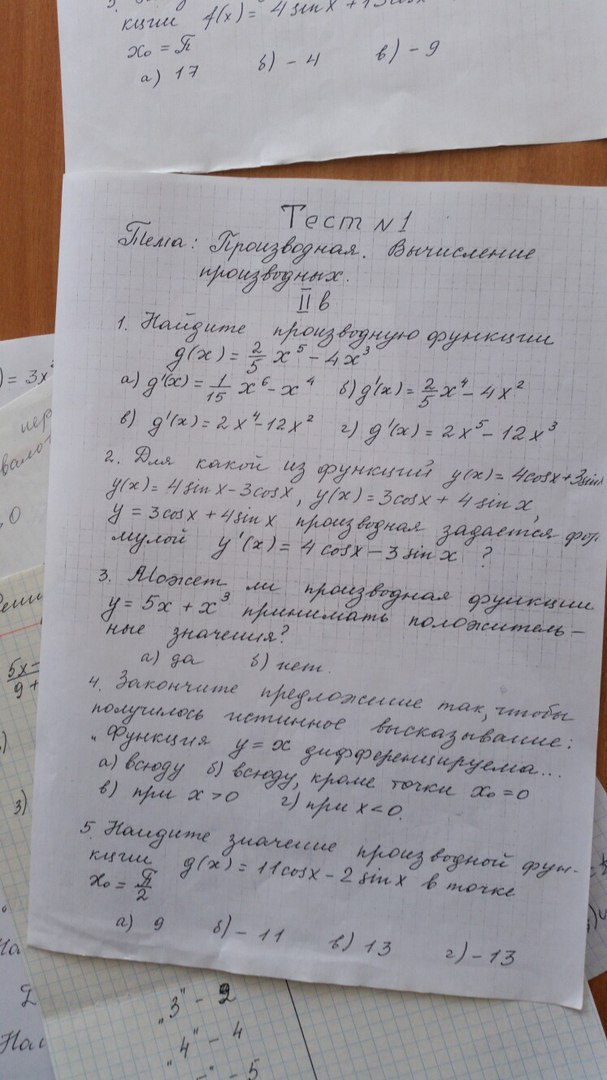 кции f(x) = 4 sin x + 13 cos
x₀ = П
а) 17 б) - 4 в) - 9
Тест N 1
Тема: Производная. Вычисление
производных.
II в
1. Найдите производную функции
g(x) = 2/5 x⁵ - 4x³
а) g'(x) = 1/15 x⁶ - x⁴ б) g'(x) = 2/5 x⁴ - 4x²
в) g'(x) = 2x⁴ - 12x² г) g'(x) = 2x⁵ - 12x³
2. Для какой из функций y(x) = 4cosx + 3sinx
y(x) = 4 sin x - 3cosx, y(x) = 3cosx + 4 sin x,
y = 3cosx + 4sin x производная задается фор
мулой y'(x) = 4 cosx - 3 sin x ?
3. Может ли производная функции
y = 5x + x³ принимать положитель-
ные значения?
а) да б) нет.
4. Закончите предложение так, чтобы
получилось истинное высказывание:
„Функция y = x дифференцируема...
а) всюду б) всюду, кроме точки x₀ = 0
в) при x > 0 г) при x < 0.
5. Найдите значение производной фун-
кции g(x) = 11cosx - 2 sin x в точке
x₀ = П/2
а) 9 б) - 11 в) 13 г) - 13
) = 3x²
пер
0
5x -
9 +
)
3)
На
„3" - 2
„4" - 4
- 5